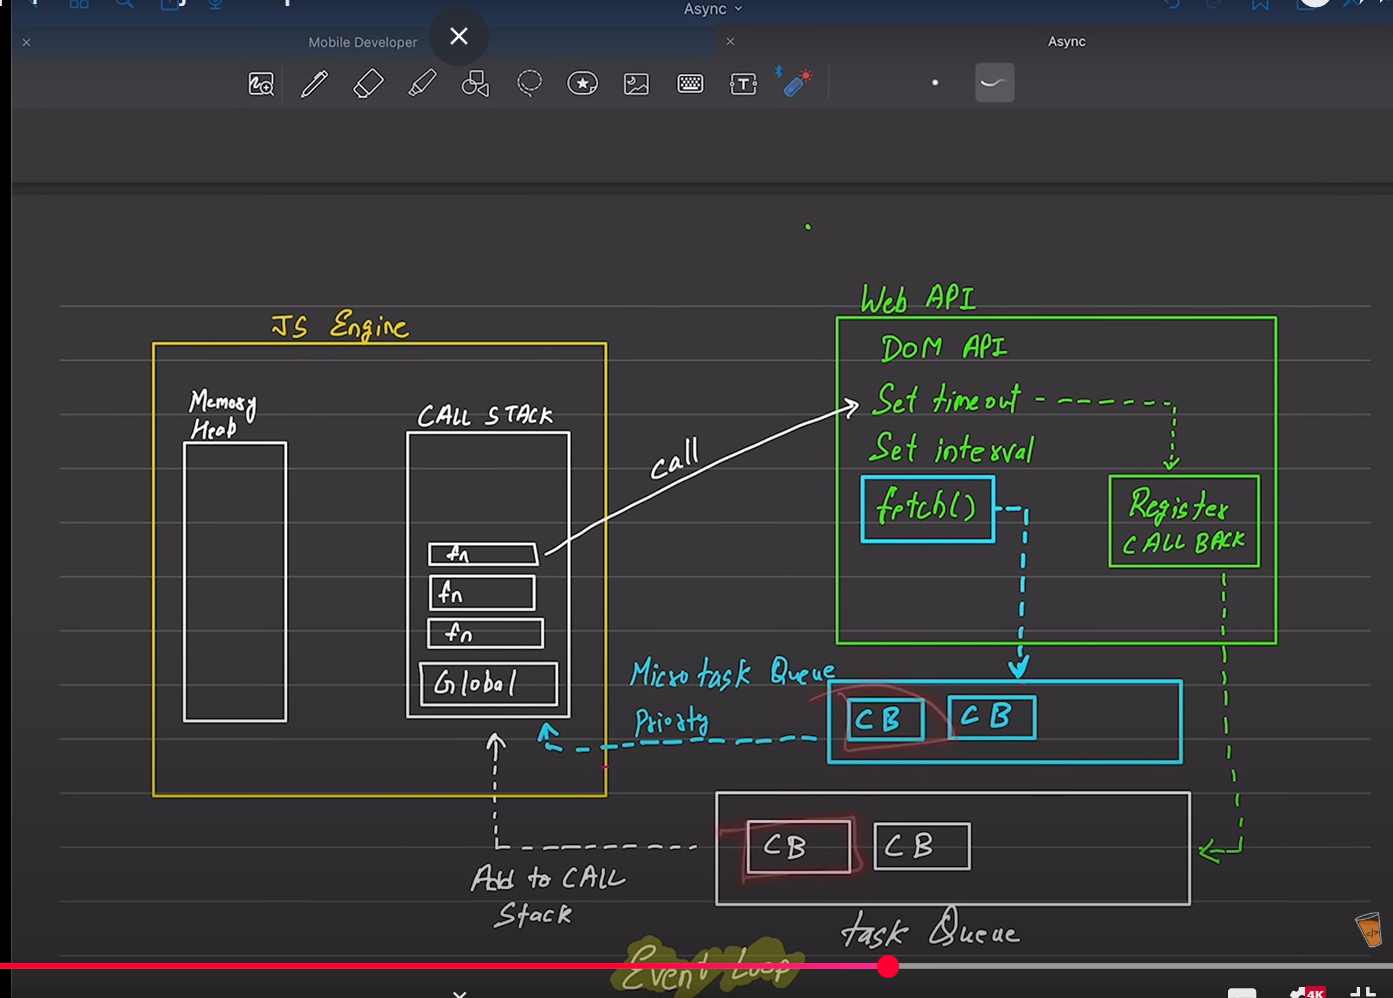 Async
Mobile Developer
Async
JS Engine
Memory
Heab
CALL STACK
fn
fn
fn
Global
call
Web API
DOM API
Set timeout
Set interval
fetch()
Register
CALL BACK
Microtask Queue
Priority
CB
CB
CB
CB
Add to CALL
Stack
task Queue
Event Loop
4K